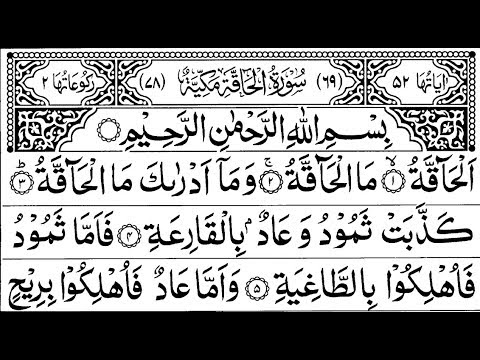 اٰيَاتُهَا ٥٢ (٦٩) سُوْرَةُ الْحَآقَّةِ مَكِّيَّةٌ (٧٨) رُكُوْعَاتُهَا ٢
بِسْمِ اللّٰهِ الرَّحْمٰنِ الرَّحِيْمِ
اَلْحَآقَّةُ ۙ‏﴿۱﴾ مَا الْحَآقَّةُ ۚ‏﴿۲﴾ وَمَاۤ اَدْرٰىكَ مَا الْحَآقَّةُ ؕ‏﴿۳﴾
كَذَّبَتْ ثَمُوْدُ وَ عَادٌۢ بِالْقَارِعَةِ ‏﴿۴﴾ فَاَمَّا ثَمُوْدُ
فَاُهْلِكُوْا بِالطَّاغِيَةِ ‏﴿۵﴾ وَاَمَّا عَادٌ فَاُهْلِكُوْا بِرِيْحٍ